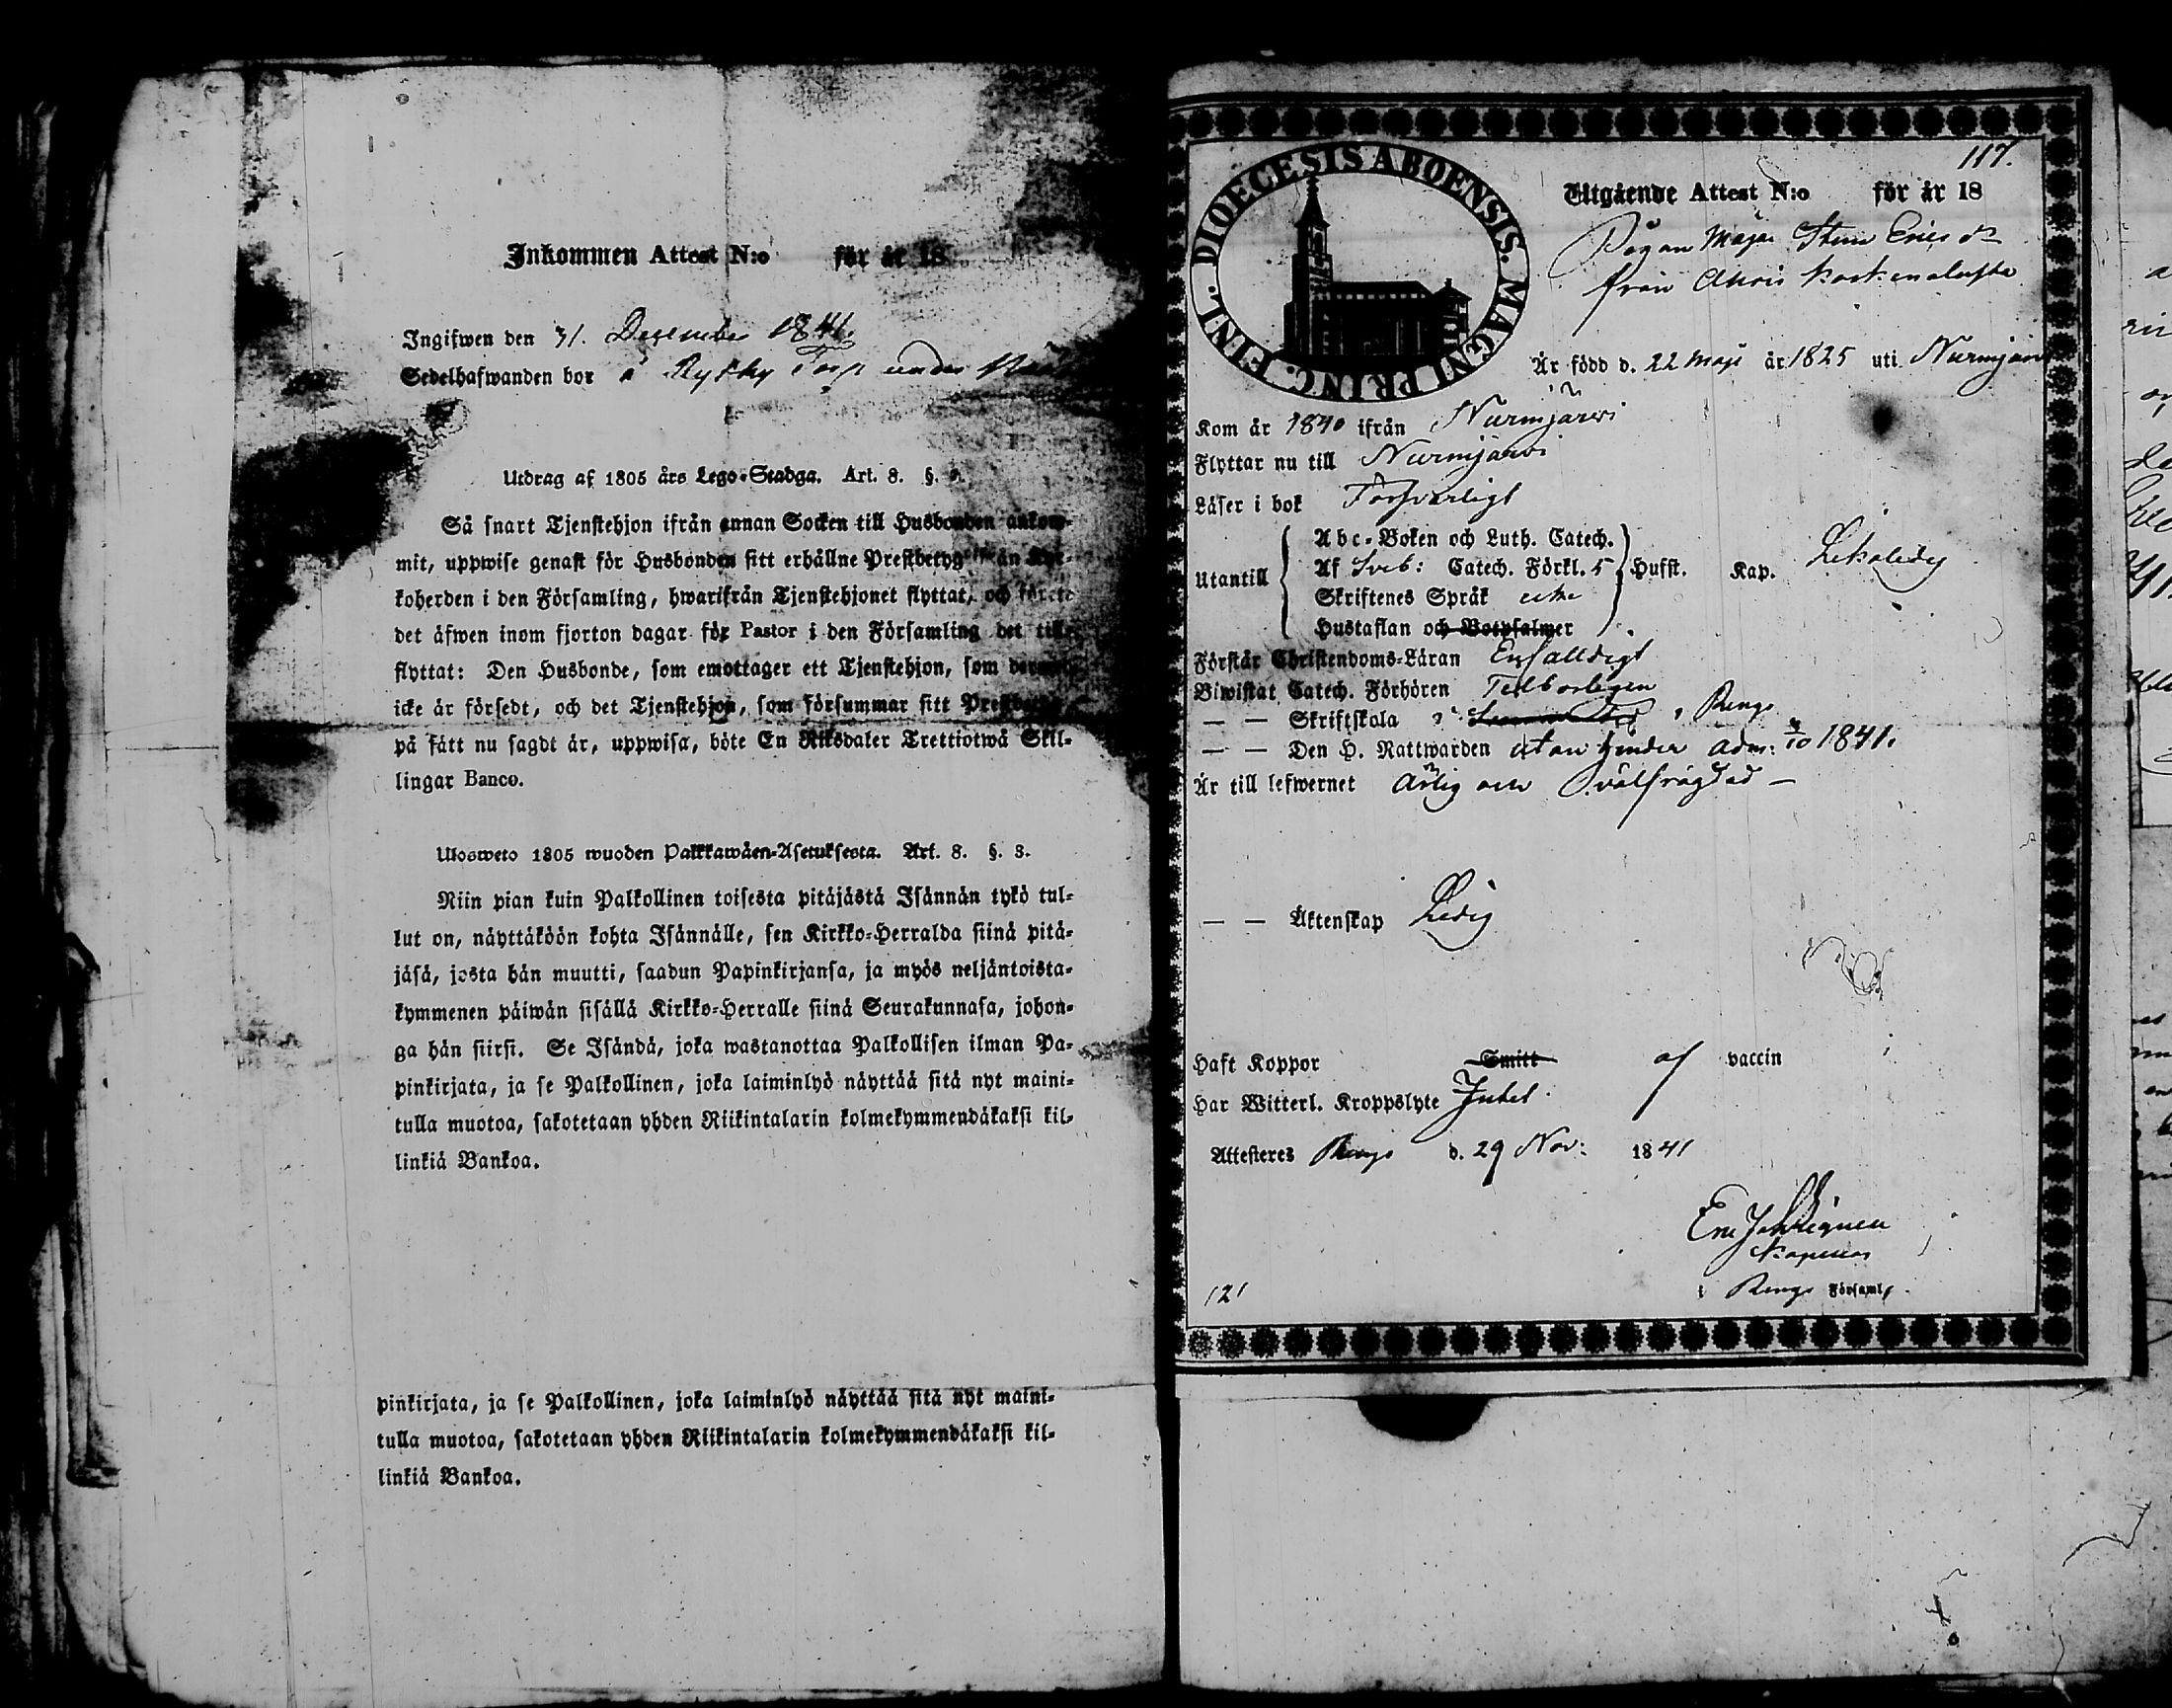 Inkommen Attest N:o för år 18
Ingifwen den 31. December 1841.
Sedelhafwanden bor å Torp under
Utdrag af 1805 års Lego-Stadga. Art. 8. §.
Så snart Tjenstehjon ifrån annan Socken till Husbonden ankom-
mit, uppwise genast för Husbonden sitt erhållne Prestbetyg från Kyr-
koherden i den Församling, hwarifrån Tjenstehjonet flyttat, och förete
det äfwen inom fjorton dagar för Pastor i den Församling det till-
flyttat: Den Husbonde, som emottager ett Tjenstehjon, som dermed
icke är försedt, och det Tjenstehjon, som försummar sitt Prestbetyg
på sätt nu sagdt är, uppwisa, böte En Riksdaler Trettiotwå Skil-
lingar Banco.
Ulosweto 1805 wuoden Palkkawäen-Asetuksesta. Art. 8. §. 3.
Niin pian kuin Palkollinen toisesta pitäjästä Isännän tykö tul-
lut on, näyttäköön kohta Isännälle, sen Kirkko-Herralda siinä pitä-
jäsä, josta hän muutti, saadun Papinkirjansa, ja myös neljäntoista-
kymmenen päiwän sisällä Kirkko-Herralle siinä Seurakunnasa, johon-
ga hän siirsi. Se Isändä, joka wastanottaa Palkollisen ilman Pa-
pinkirjata, ja se Palkollinen, joka laiminlyö näyttää sitä nyt maini-
tulla muotoa, sakotetaan yhden Riikintalarin kolmekymmendäkaksi kil-
linkiä Bankoa.
pinkirjata, ja se Palkollinen, joka laiminlyö näyttää sitä nyt maini-
tulla muotoa, sakotetaan yhden Riikintalarin kolmekymmendäkaksi kil-
linkiä Bankoa.
DIOECESIS ABOENSIS. MAGNI PRINC. FINL.
117.
Utgående Attest N:o för år 18
Pigan Maja Stina Erics dr
från
Är född d. 22 Maji år 1825 uti Nurmjärvi
Kom år 1840 ifrån Nurmjärvi
Flyttar nu till Nurmjärvi
Läser i bok Försvarligt
Utantill
Abc-Boken och Luth. Catech.
Af Sveb: Catech. Förkl. 5 Hufst. Kap.
Skriftenes Språk
Hustaflan och Botpsalmer
Förstår Christendoms-Läran Enfalldigt
Biwistat Catech. Förhören Tillbörligen
— — Skriftskola i Rengo
— — Den H. Nattwarden utan hinder adm: 1841.
Är till lefwernet Ärlig och välfrägdad —
— — Äktenskap Ledig
Haft Koppor Smitt af vaccin
Har Witterl. Kroppslyte Intet.
Attesteres Rengo d. 29 Nov: 1841
i Rengo Församl.
121